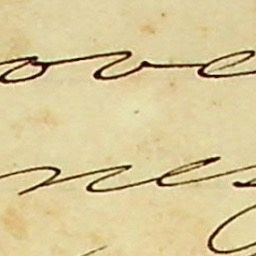 ove
nes